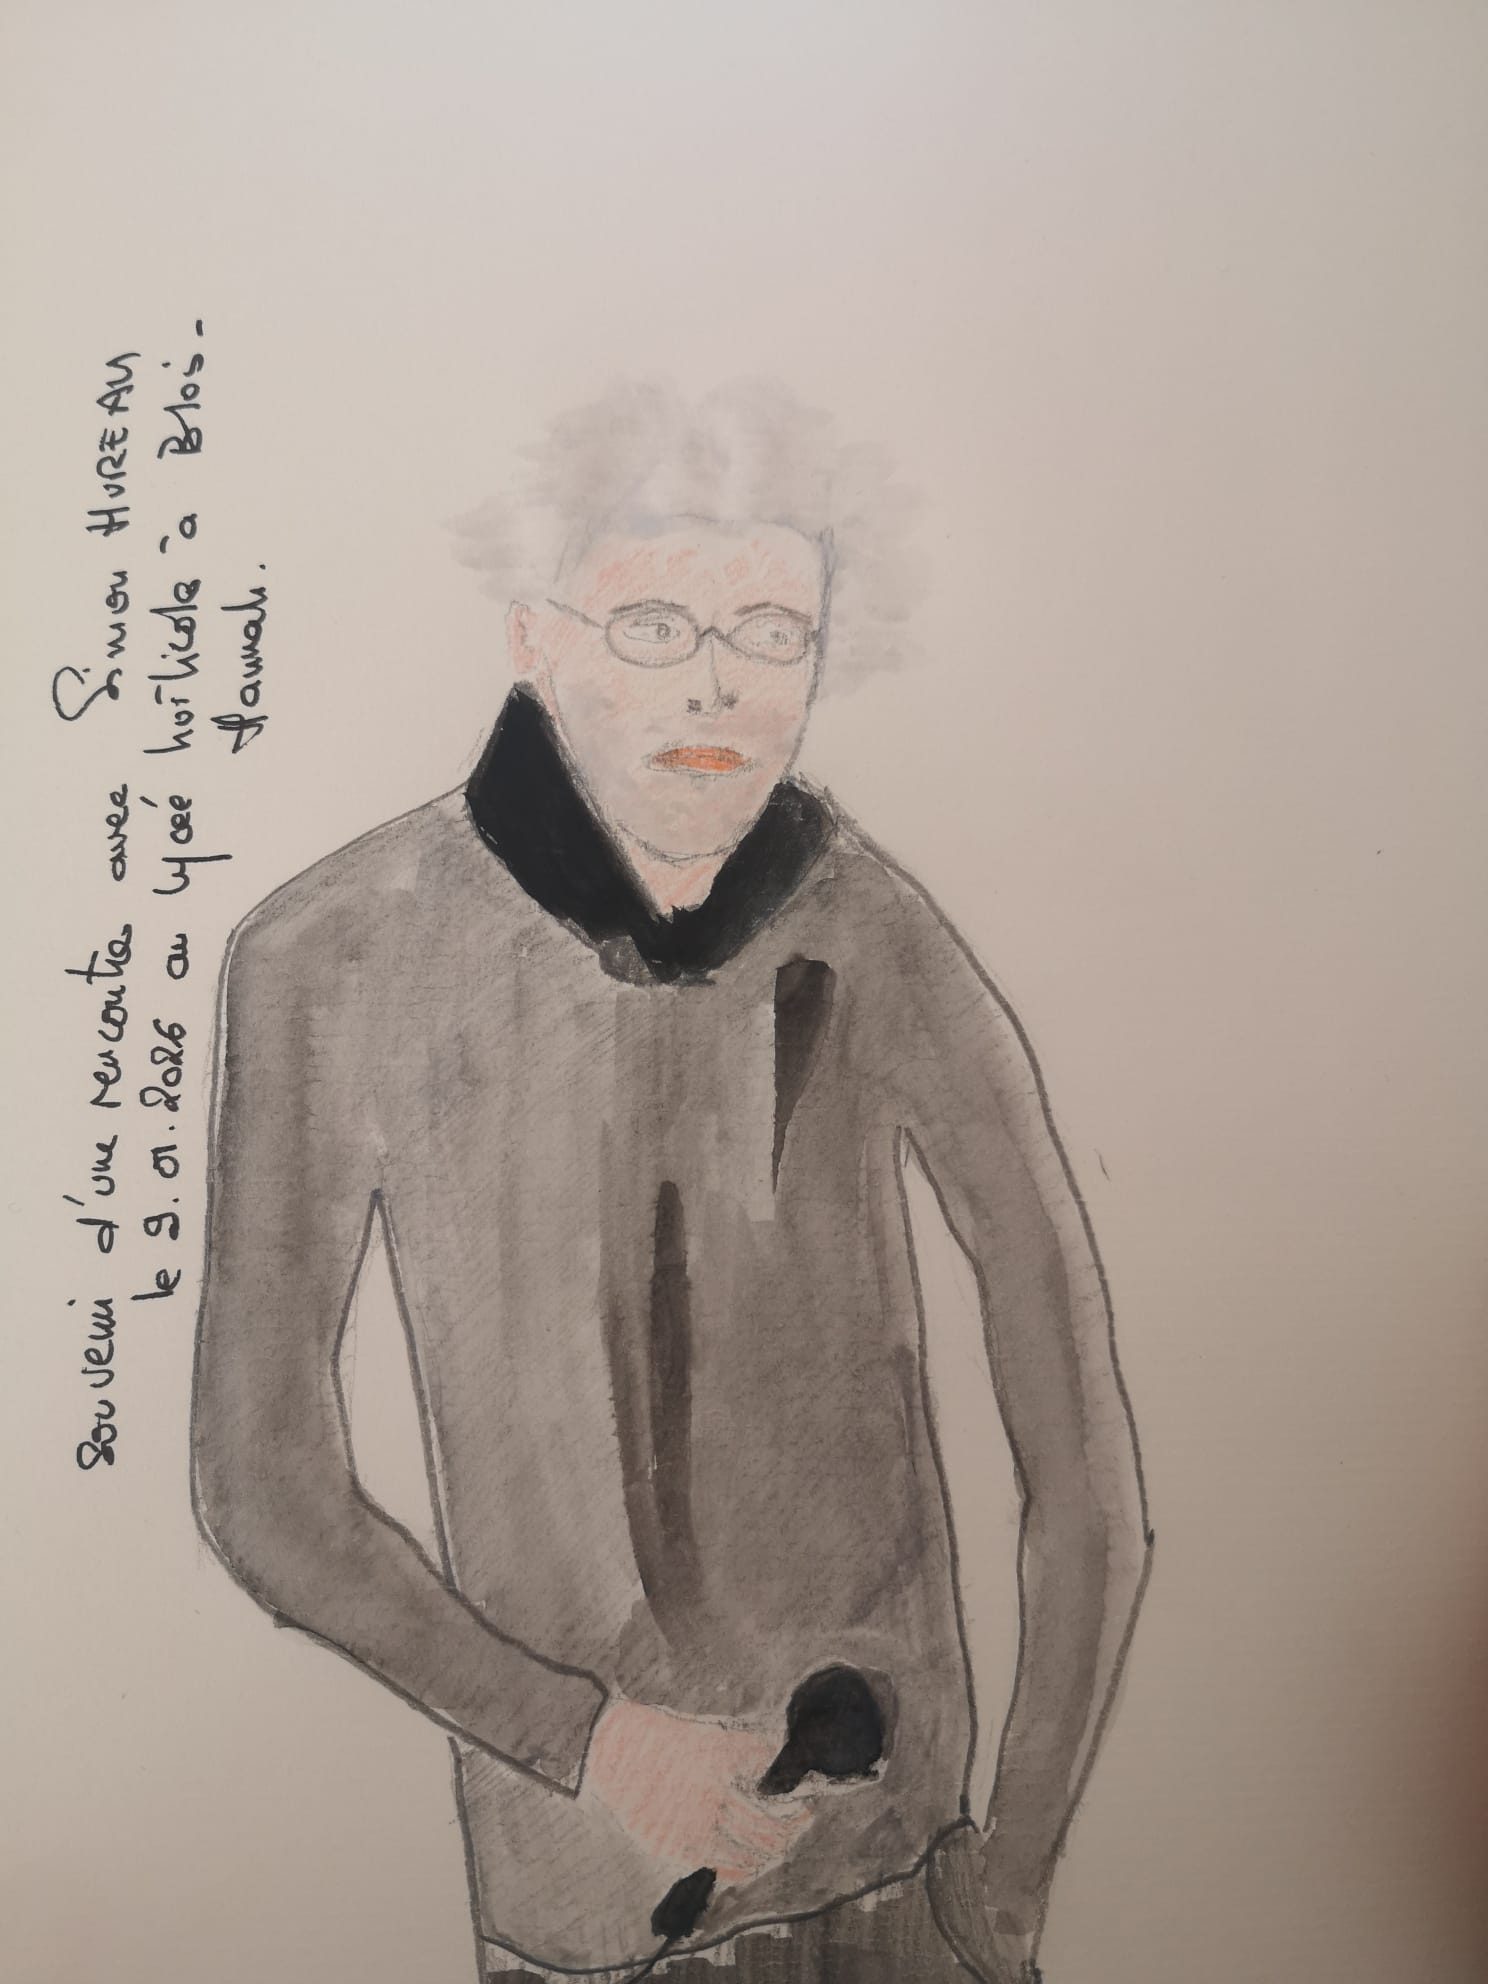 Souvenir d'une rencontre avec Simon HUREAU
le 9.01.2026 au lycée horticole à Blois-
Hannah.